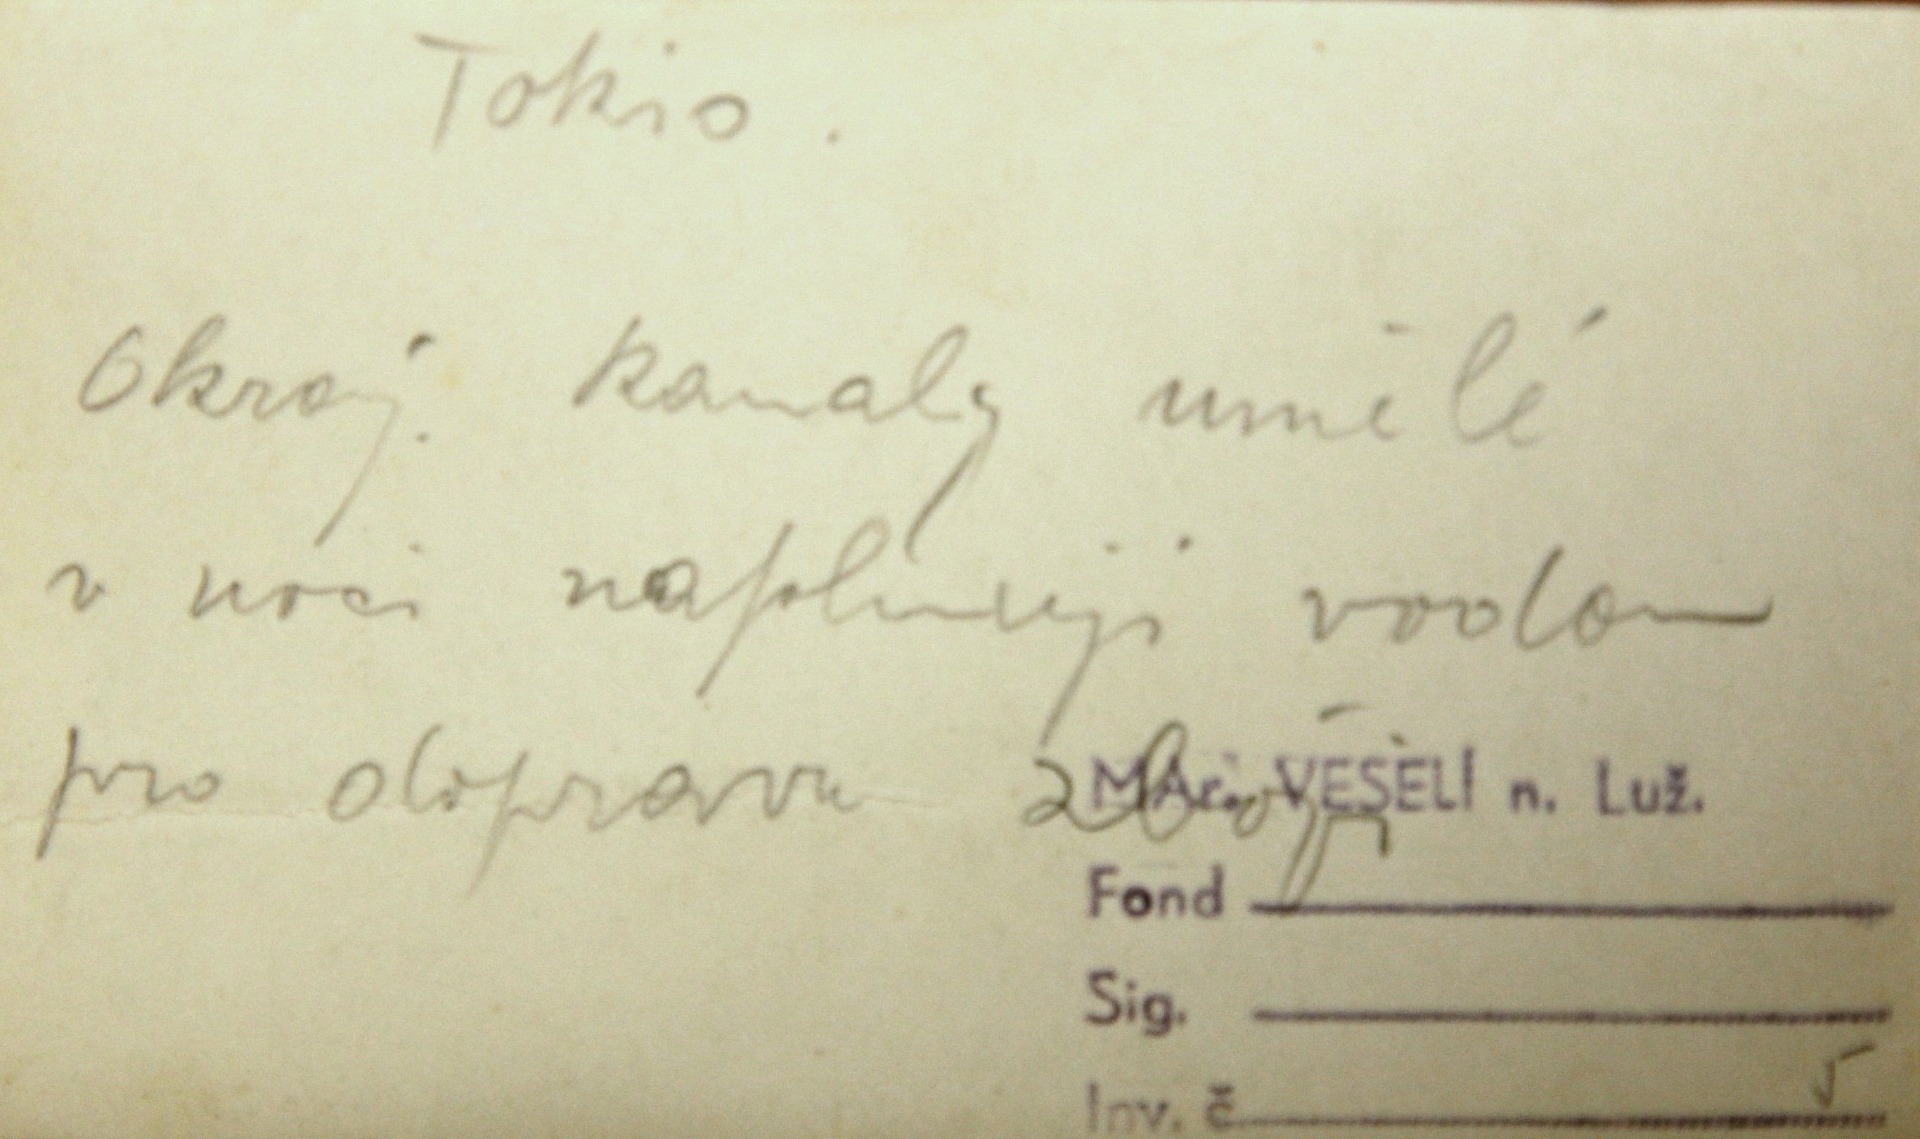 Tokio.
Okraj. kanaly umělé
v noci naplňují vodou
pro dopravu zboží
MAr. VESELÍ n. Luž.
Fond
Sig.
Inv. č 5